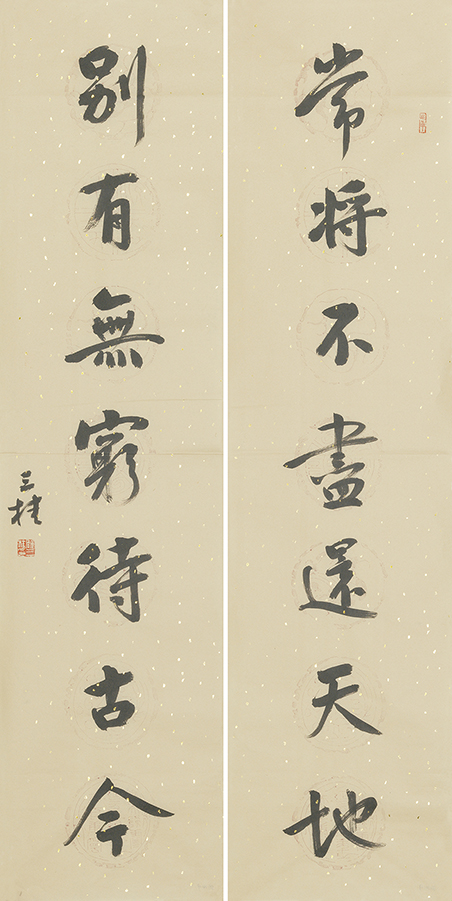 常將不盡還天地
別有無窮待古今
三桂